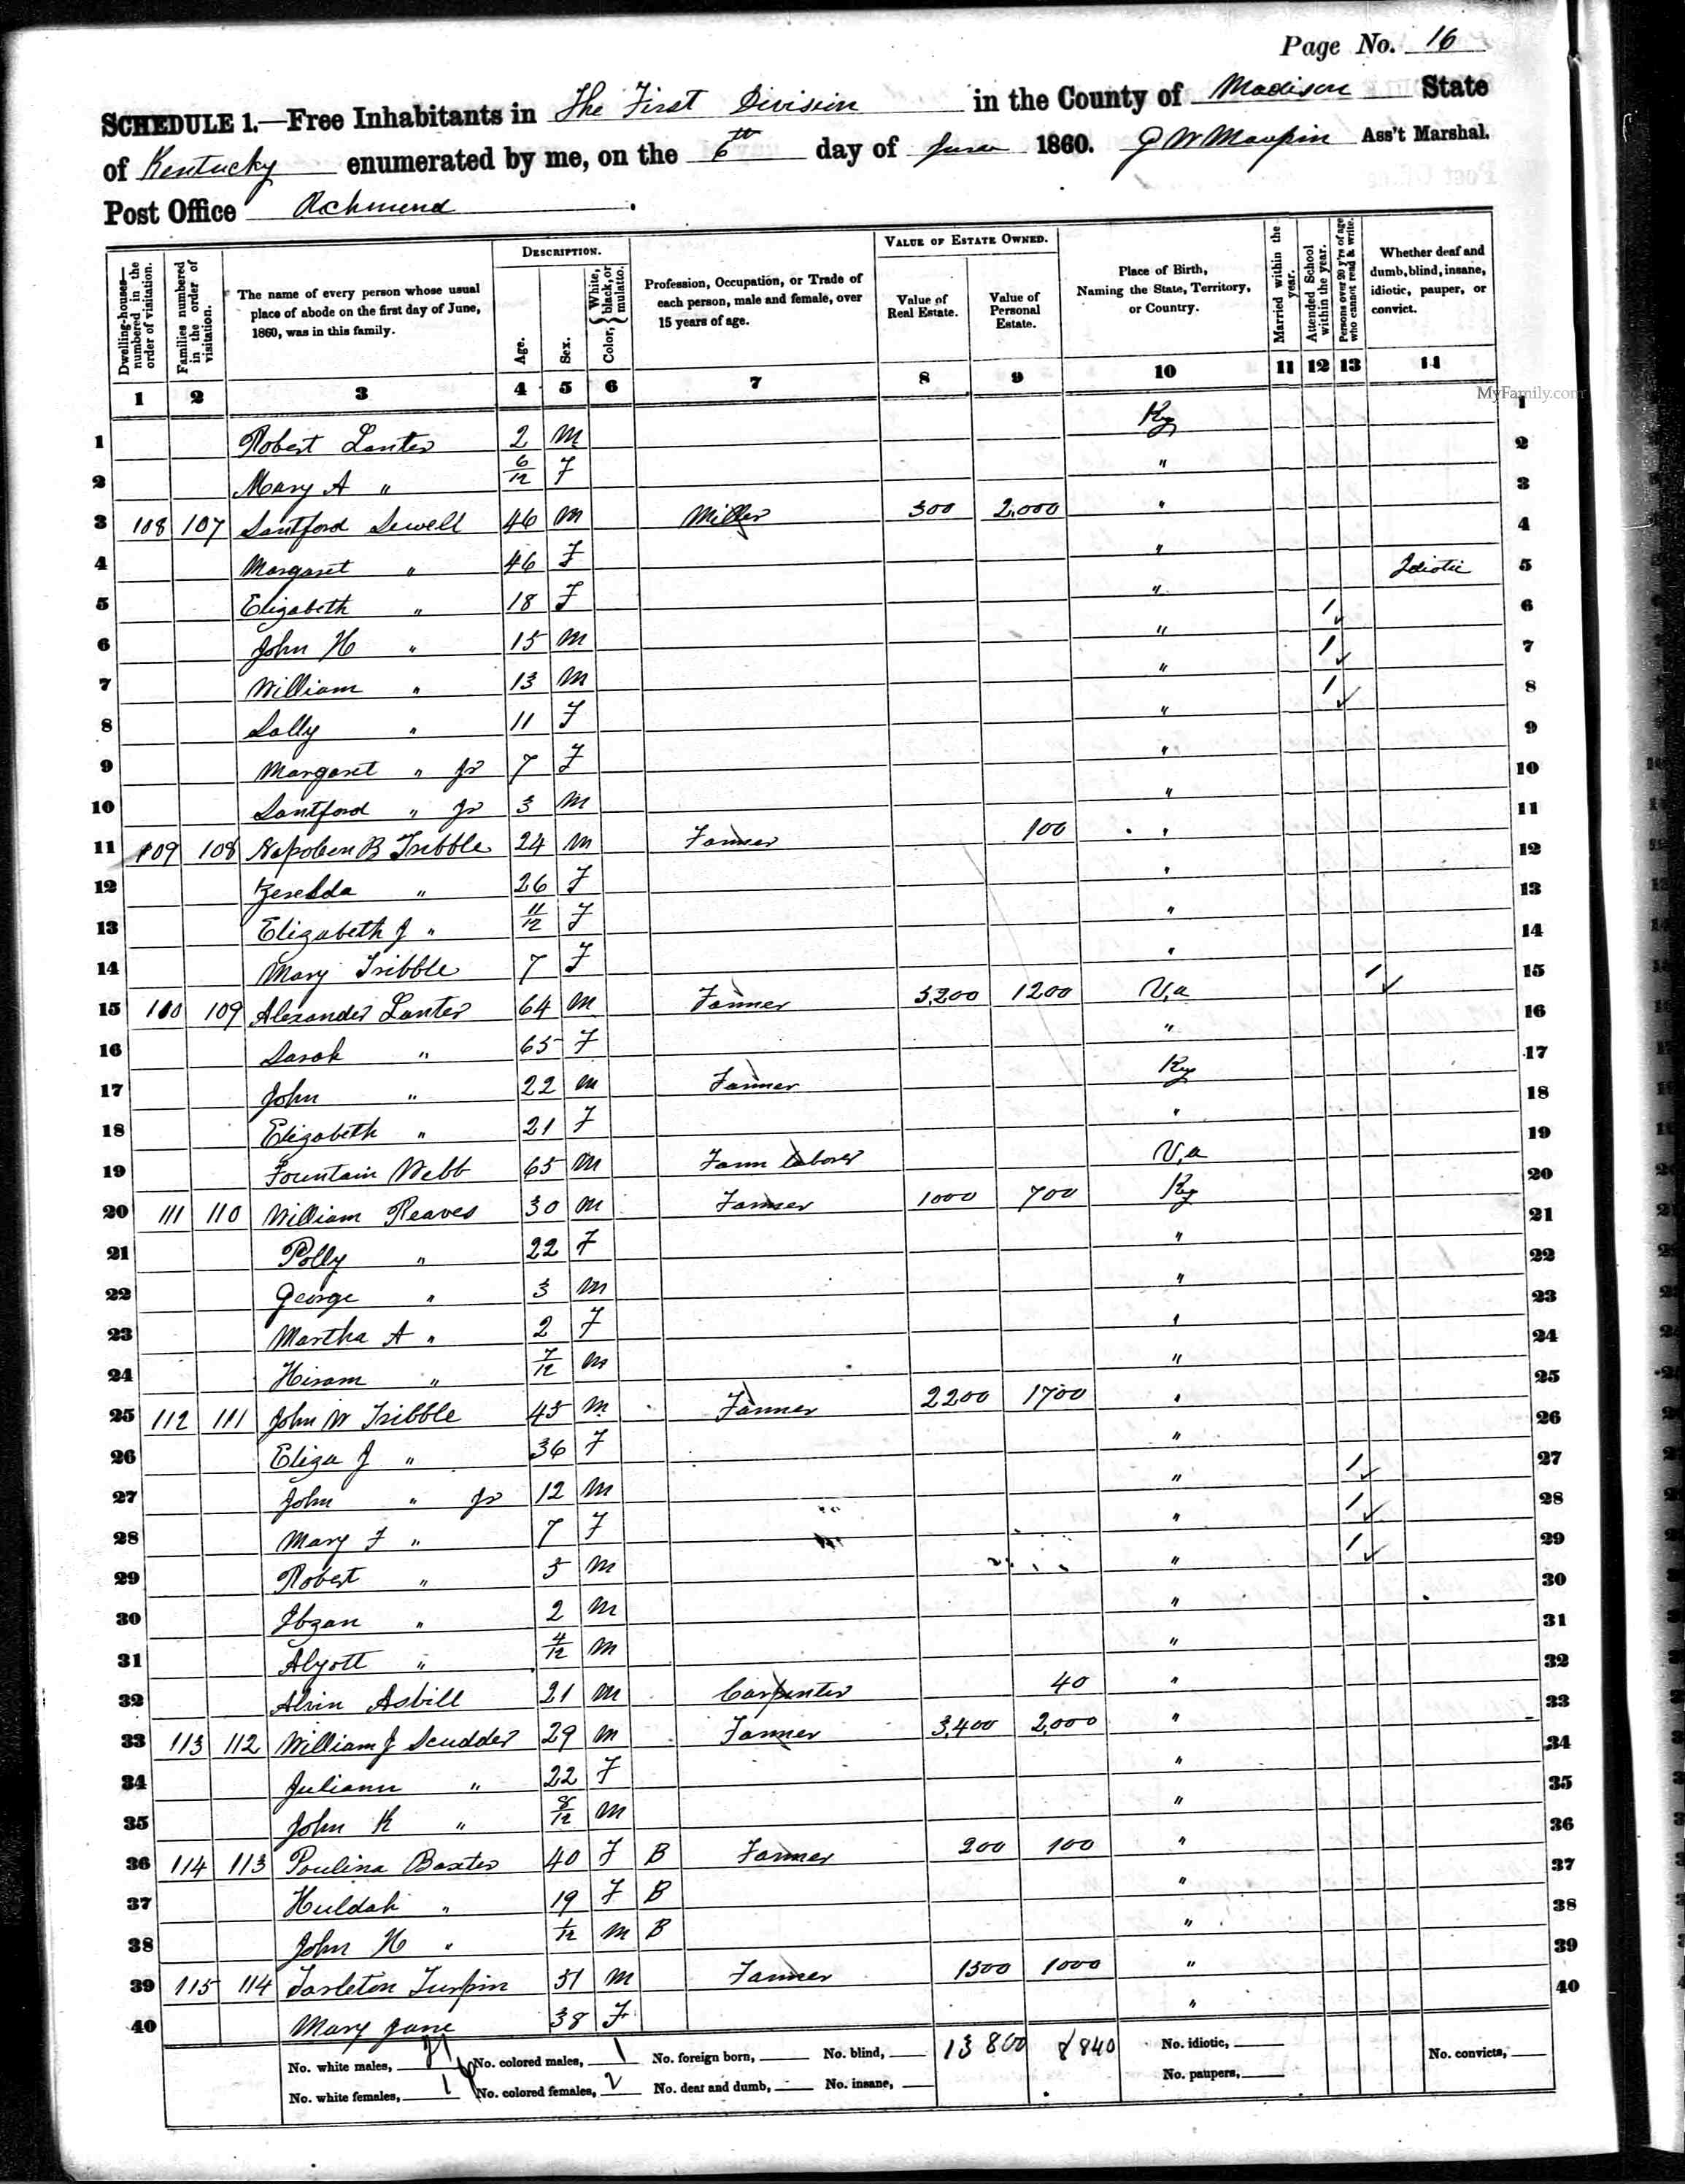 Page No. 16
SCHEDULE 1.—Free Inhabitants in The First Division in the County of Madison State
of Kentucky enumerated by me, on the 6th day of June 1860. J W Maupin Ass't Marshal.
Post Office Richmond.
Dwelling-houses—numbered in the order of visitation. Families numbered in the order of visitation. The name of every person whose usual place of abode on the first day of June, 1860, was in this family. DESCRIPTION. Age. Sex. Color, {White, black, or mulatto. Profession, Occupation, or Trade of each person, male and female, over 15 years of age. VALUE OF ESTATE OWNED. Value of Real Estate. Value of Personal Estate. Place of Birth, Naming the State, Territory, or Country. Married within the year. Attended School within the year. Persons over 20 y'rs of age who cannot read & write. Whether deaf and dumb, blind, insane, idiotic, pauper, or convict.
1 2 3 4 5 6 7 8 9 10 11 12 13 14
MyFamily.com
1 Robert Lanter 2 M Ky 1
2 Mary A " 6/12 F " 2
3 108 107 Santford Sewell 46 M Miller 300 2,000 " 3
4 Margaret " 46 F " 4
5 Elizabeth " 18 F " Idiotic 5
6 John H " 15 M " 1 6
7 William " 13 M " 1 7
8 Sally " 11 F " 1 8
9 Margaret " Jr 7 F " 9
10 Santford " Jr 3 M " 10
11 109 108 Napoleon B Tribble 24 M Farmer 100 " 11
12 " 26 F " 12
13 Elizabeth J " 11/12 F " 13
14 Mary Tribble 7 F " 14
15 110 109 Alexander Lanter 64 M Farmer 5,200 1200 Va 1 15
16 Sarah " 65 F " 16
17 John " 22 M Farmer Ky 17
18 Elizabeth " 21 F " 18
19 Fountain Webb 65 M Farm laborer Va 19
20 111 110 William Reaves 30 M Farmer 1000 700 Ky 20
21 Polly " 22 F " 21
22 George " 3 M " 22
23 Martha A " 2 F " 23
24 Hiram " 7/12 M " 24
25 112 111 John W Tribble 45 M Farmer 2200 1700 " 25
26 Eliza J " 36 F " 26
27 John " Jr 12 M " 1 27
28 Mary F " 7 F " 1 28
29 Robert " 5 M " 1 29
30 Ibzan " 2 M " 30
31 Alyott " 4/12 M " 31
32 Alvin Asbill 21 M Carpenter 40 " 32
33 113 112 William J Scudder 29 M Farmer 3,400 2,000 " 33
34 Juliann " 22 F " 34
35 John K " 8/12 M " 35
36 114 113 Paulina Baxter 40 F B Farmer 200 100 " 36
37 Huldah " 19 F B " 37
38 John H " 1/12 M B " 38
39 115 114 Tarleton Turpin 51 M Farmer 1500 1000 " 39
40 Mary Jane 38 F " 40
No. white males, 21 No. colored males, 1 No. foreign born, No. blind, 13 800 8840 No. idiotic, No. convicts,
No. white females, 16 No. colored females, 2 No. deaf and dumb, No. insane, No. paupers,